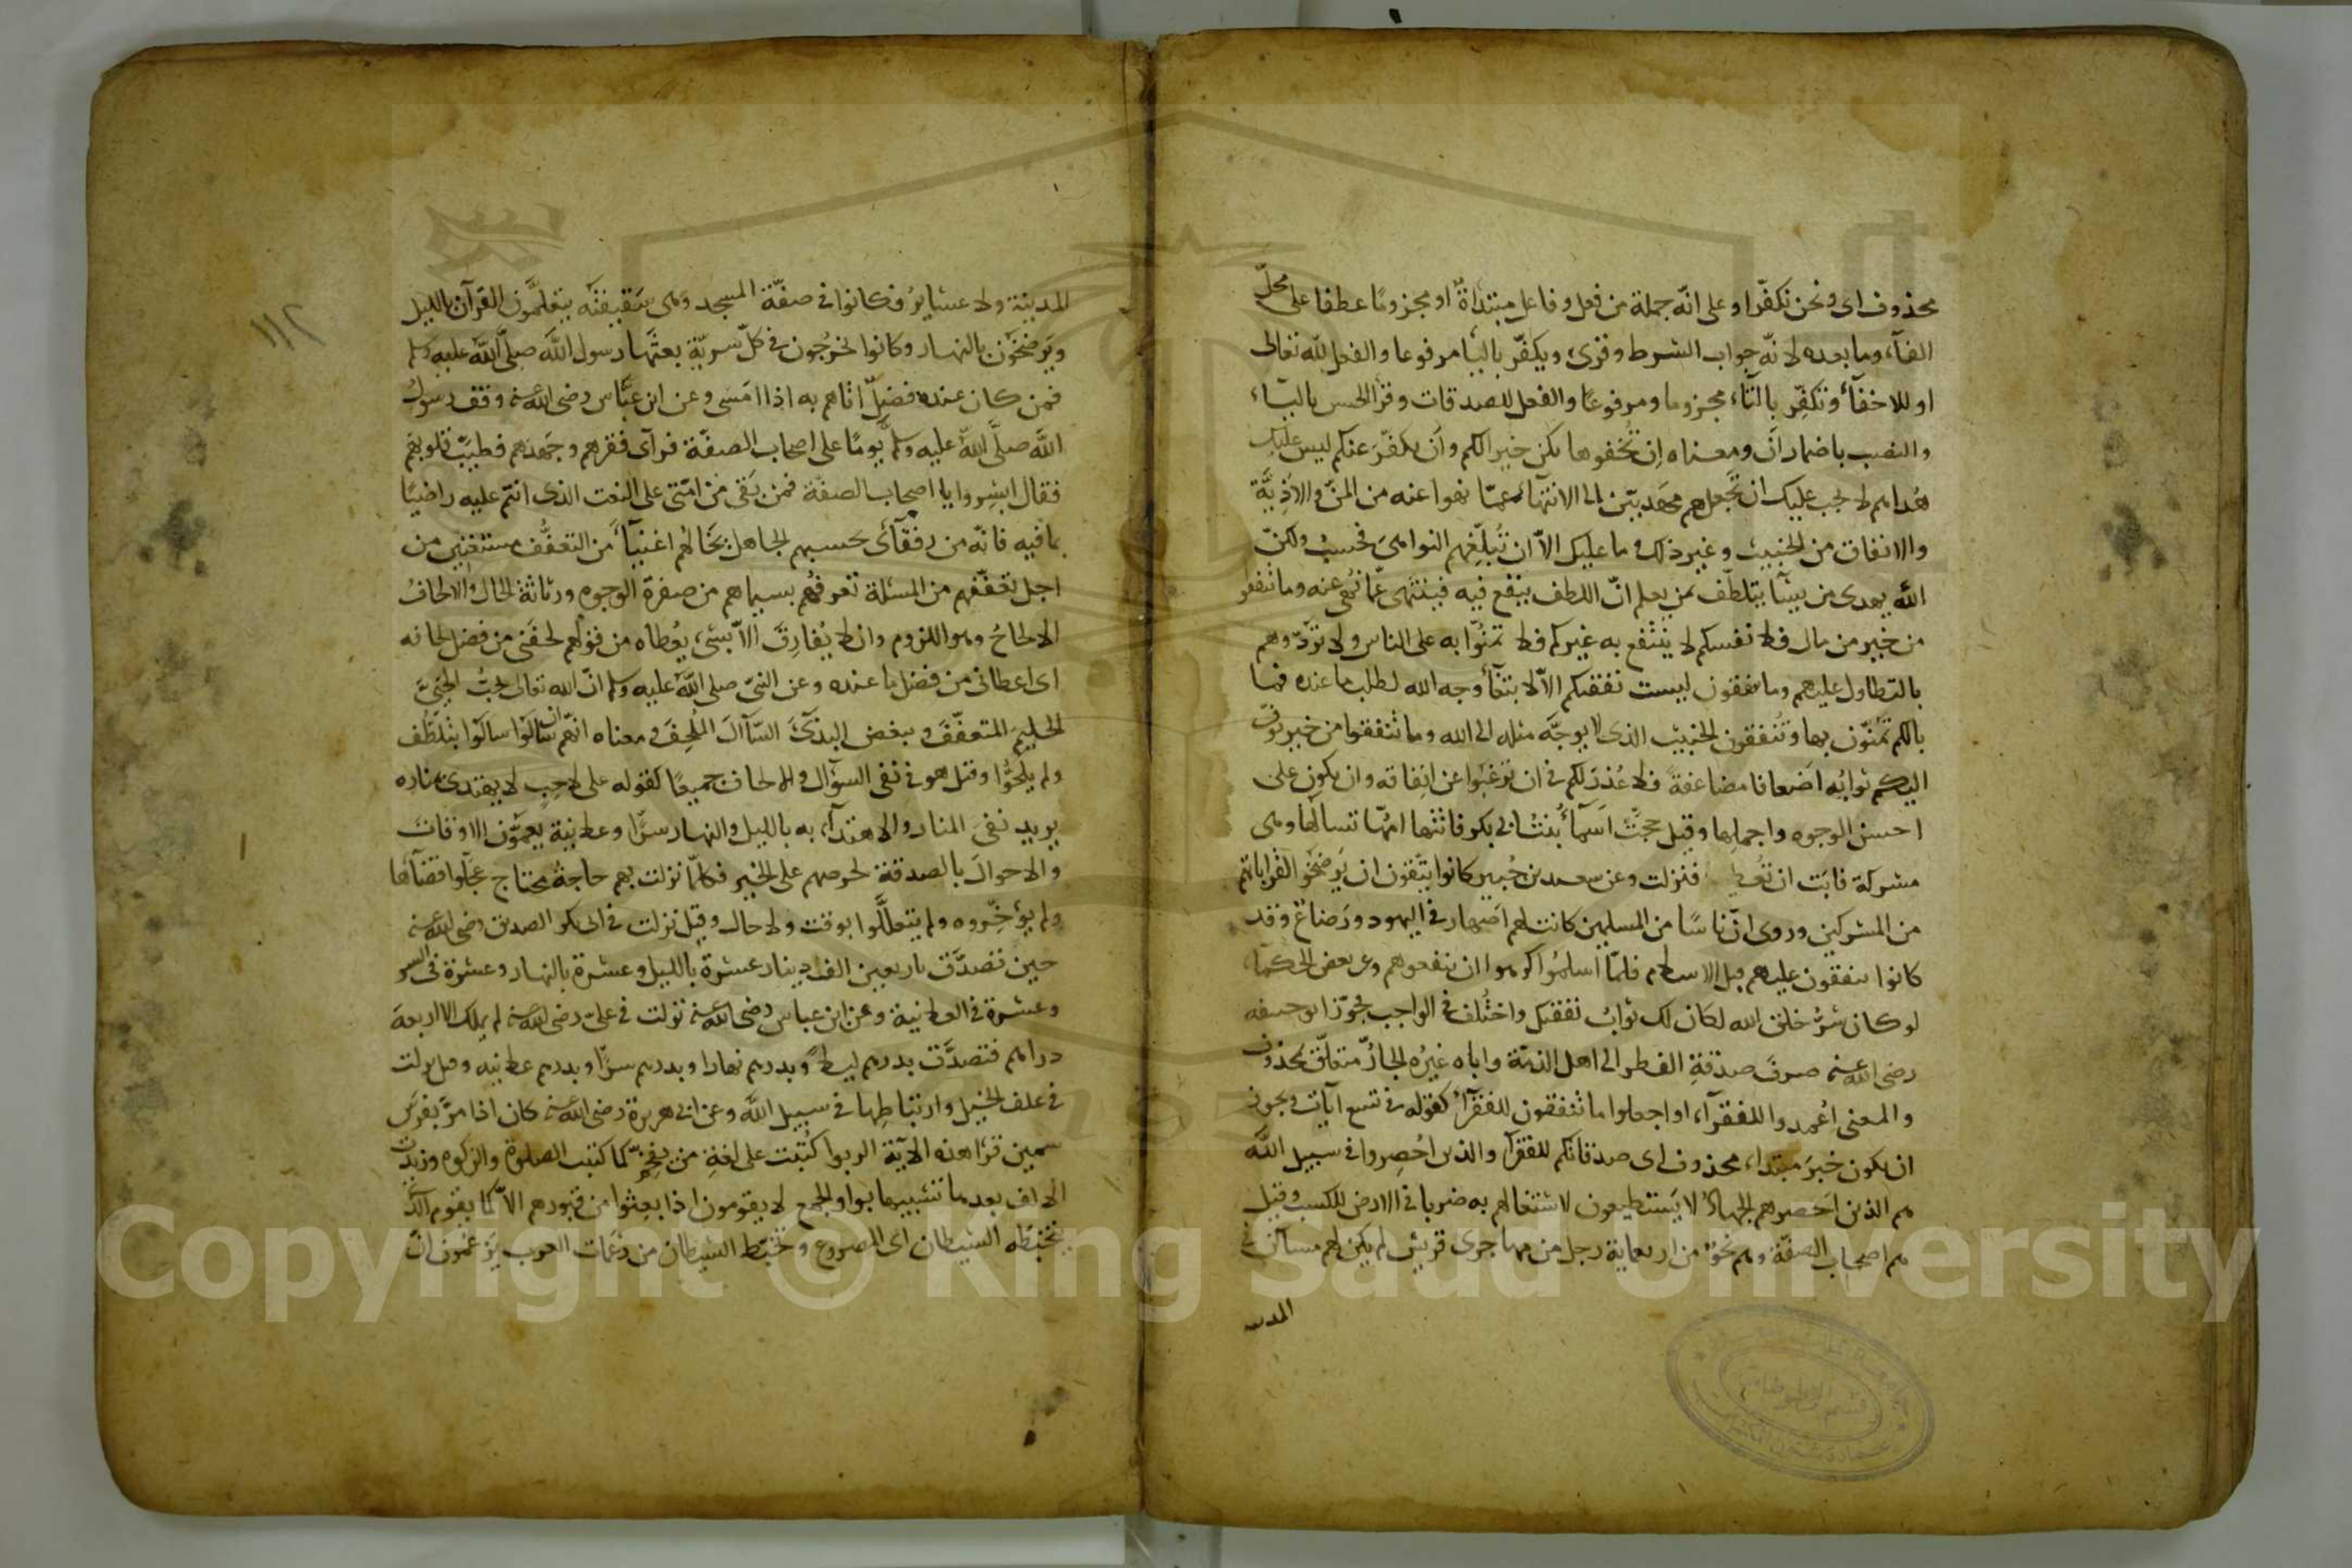 محذوف اى ونحن نكفّر او على انّه جملة من فعل وفاعل مبتدأةٌ او مجزومًا عطفا على محلّ
الفآء وما بعده لانّه جواب الشرط وقرئ ويكفّر باليا مرفوعا والفعل لله تعالى
او للاخفآء وتكفّر بالتآء مجزوما ومرفوعًا والفعل للصدقات وقرا الحسن باليآء
والنصب باضمار انْ ومعناه إن تُخفوها يكن خيرا لكم وأن يكفّرَ عنكم ليس عليك
هُداهم لا يجب عليك ان تجعلهم مهديّين الى الانتهآء عمّا نهوا عنه من المنّ والاذيّة
والانفاق من الخبيث وغير ذلك وما عليك الاّ ان تُبلّغهم النواهىَ فحسبُ ولكنّ
الله يهدى من يشآ يتلطّف بمن يعلم انّ اللطف ينفع فيه فينتهى عمّا نُهى عنه وما تنفقوا
من خير من مال فلانفسكم لا ينتفع به غيركم فلا تمنّوا به على الناس ولا تؤذوهم
بالتطاول عليهم وما تنفقون ليست نفقتكم الاّ لابتغآء وجه الله لطلب ما عنده فما
بالكم تمنّون بها وتُنفقون الخبيث الذى لا يوجَّه مثله الى الله وما تنفقوا من خير يوفّ
اليكم ثوابُه اضعافا مضاعفةً فلا عُذرَ لكم فى ان ترغبوا عن انفاقه وان يكون على
احسن الوجوه واجملها وقيل حجّتْ اسمآءُ بنتُ ابى بكر فاتتها امّها تسألها وهى
مشركة فابَت ان تُعطيها فنزلت وعن سعيد بن جُبير كانوا يتّقون ان يَرضخوا لقراباتهم
من المشركين وروى انّ ناسًا من المسلمين كانت لهم اصهار فى اليهود ورَضاع وقد
كانوا ينفقون عليهم قبل الاسلام فلمّا اسلموا كرهوا ان ينفعوهم وعن بعض الحكماء
لو كان شرُّ خلق الله لكان لك ثوابُ نفقتك واختُلف فى الواجب فجوّز ابو حنيفة
رضى الله عنه صرفَ صدقةِ الفطر الى اهل الذمّة واباه غيرُه الجارّ متعلّق بمحذوف
والمعنى اعْمِدوا للفقرآء او اجعلوا ما تنفقون للفقرآء كقوله فى تسع آيات ويجوز
ان يكون خبرَ مبتداء محذوف اى صدقاتكم للفقرآ والذين اُحصِروا فى سبيل الله
هم الذين احصرهم الجهادُ لا يَستطيعون لاشتغالهم به ضربا فى الارض للكسب وقيل
هم اصحاب الصفّة وهم نحوٌ من اربعماية رجل من مهاجرى قريش لم يكن لهم مساكن فى
المدينة
المدينة ولا عشايرُ فكانوا فى صفّة المسجد وهى سَقيفتُه يتعلّمون القرآن بالليل
ويَرضخون بالنهار وكانوا يخرُجون فى كلّ سريّة بعثَها رسول الله صلى الله عليه وسلم
فمن كان عنده فضلٌ اتاهم به اذا امسى وعن ابن عبّاس رضى الله عنه وقف رسولُ
الله صلّى الله عليه وسلم يومًا على اصحاب الصفّة فرآى فقرهم وجَهدَهم فطيّبَ قلوبهم
فقال ابشِروا يا اصحاب الصفة فمن بَقى من امّتى على النعت الذى انتم عليه راضيًا
بما فيه فانّه من رفقآئى يحسبهم الجاهل بحالهُم اغنيآء من التعفُّف مستغنين من
اجل تعفّفهم من المسئلة تعرفهُم بسيماهم من صفرة الوجوه ورثاثة الحال والالحافُ
الالحاحُ وهو اللزوم وان لا يُفارِقَ الاّ بشىء يُعطاه من قولهم لحفَنى من فضل لحافه
اى اعطانى من فضل ما عنده وعن النبىّ صلى الله عليه وسلم انّ الله تعالى يحبُّ الحيىَّ
الحليمَ المتعفّفَ ويبغض البذىَّ السّآالَ المُلحِفَ ومعناه انّهم ان سالوا سالوا بتلطُّف
ولم يلحّوا وقيل هو فى نفى السؤال والالحاف جميعًا كقوله على لاحِبٍ لا يهتدى بمناره
يريد نفىَ المنار والاهتدآء به بالليل والنهار سرًّا وعلانيةً يعمّون الاوقات
والاحوالَ بالصدقة لحرصهم على الخير فكلّما نزلت بهم حاجةُ محتاج عجّلوا قضآها
ولم يؤخّروه ولم يتعلّلوا بوقت ولا حال وقيل نزلت فى ابى بكر الصديق رضى الله عنه
حين تصدّق باربعين الف دينار عشرة بالليل وعشرة بالنهار وعشرة فى السر
وعشرة فى العلانية وعن ابن عباس رضى الله عنه نزلت فى علىّ رضى الله عنه لم يملك الا اربعة
دراهم فتصدَّق بدرهم ليلاً وبدرهم نهارا وبدرهم سرًّا وبدرهم علانيه وقيل نزلت
فى علف الخيل وارتباطِها فى سبيل الله وعن ابى هريرة رضى الله عنه كان اذا مرَّ بفرَس
سمين قرَا هذه الآية الربوا كُتبت على لغةِ من يفخّم كما كتبت الصلوة والزكوة وزيدت
الالف بعدها تشبيها بواو الجمع لا يقومون اذا بعِثوا من قبورهم الاّ كما يقوم الذى
يتخبّطه الشيطان اى المصروع وتخبّط الشيطان من زعَمات العرب يزعُمون انّ
١١٢